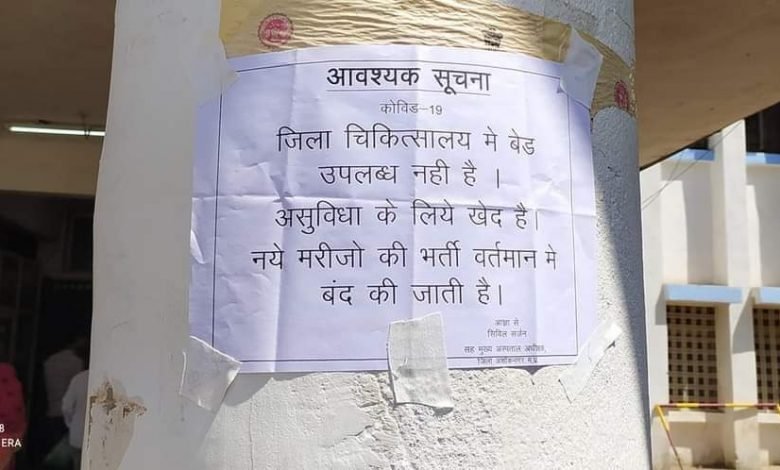 आवश्यक सूचना
कोविड-19
जिला चिकित्सालय मे बेड
उपलब्ध नही है ।
असुविधा के लिये खेद है।
नये मरीजो की भर्ती वर्तमान मे
बंद की जाती है।
आज्ञा से
सिविल सर्जन
सह मुख्य अस्पताल अधीक्षक,
जिला अशोकनगर म.प्र.
8
ERA